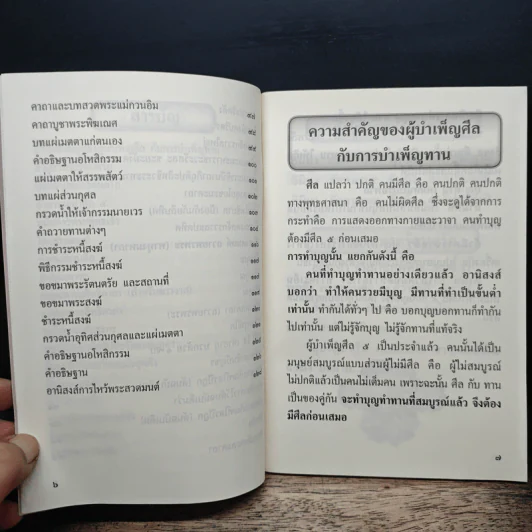 คาถาและบทสวดพระแม่กวนอิม
คาถาบูชาพระพิฆเณศ
บทแผ่เมตตาแก่ตนเอง
คำอธิษฐานอโหสิกรรม
แผ่เมตตาให้สรรพสัตว์
บทแผ่ส่วนกุศล
กรวดน้ำให้เจ้ากรรมนายเวร
คำถวายทานต่างๆ
การชำระหนี้สงฆ์
พิธีกรรมชำระหนี้สงฆ์
ขอขมาพระรัตนตรัย และสถานที่
ขอขมาพระสงฆ์
ชำระหนี้สงฆ์
กรวดน้ำอุทิศส่วนกุศลและแผ่เมตตา
คำอธิษฐานอโหสิกรรม
คำอธิษฐาน
อานิสงส์การไหว้พระสวดมนต์
๖
ความสำคัญของผู้บำเพ็ญศีล
กับการบำเพ็ญทาน
ศีล แปลว่า ปกติ คนมีศีล คือ คนปกติ คนปกติ
ทางพุทธศาสนา คือ คนไม่ผิดศีล ซึ่งจะดูได้จากการ
กระทำคือ การแสดงออกทางกายและวาจา คนทำบุญ
ต้องมีศีล ๕ ก่อนเสมอ
การทำบุญนั้น แยกกันดังนี้ คือ
คนที่ทำบุญทำทานอย่างเดียวแล้ว อานิสงส์
บอกว่า ทำให้คนรวยมีบุญ มีทานที่ทำเป็นขั้นต่ำ
เท่านั้น ทำกันได้ทั่วๆ ไป คือ บอกบุญบอกทานก็ทำกัน
ไปเท่านั้น แต่ไม่รู้จักบุญ ไม่รู้จักทานที่แท้จริง
ผู้บำเพ็ญศีล ๕ เป็นประจำแล้ว คนนั้นได้เป็น
มนุษย์สมบูรณ์แบบส่วนผู้ไม่มีศีล คือ ผู้ไม่สมบูรณ์
ไม่ปกติแล้วเป็นคนไม่เต็มคน เพราะฉะนั้น ศีล กับ ทาน
เป็นของคู่กัน จะทำบุญทำทานที่สมบูรณ์แล้ว จึงต้อง
มีศีลก่อนเสมอ
๗